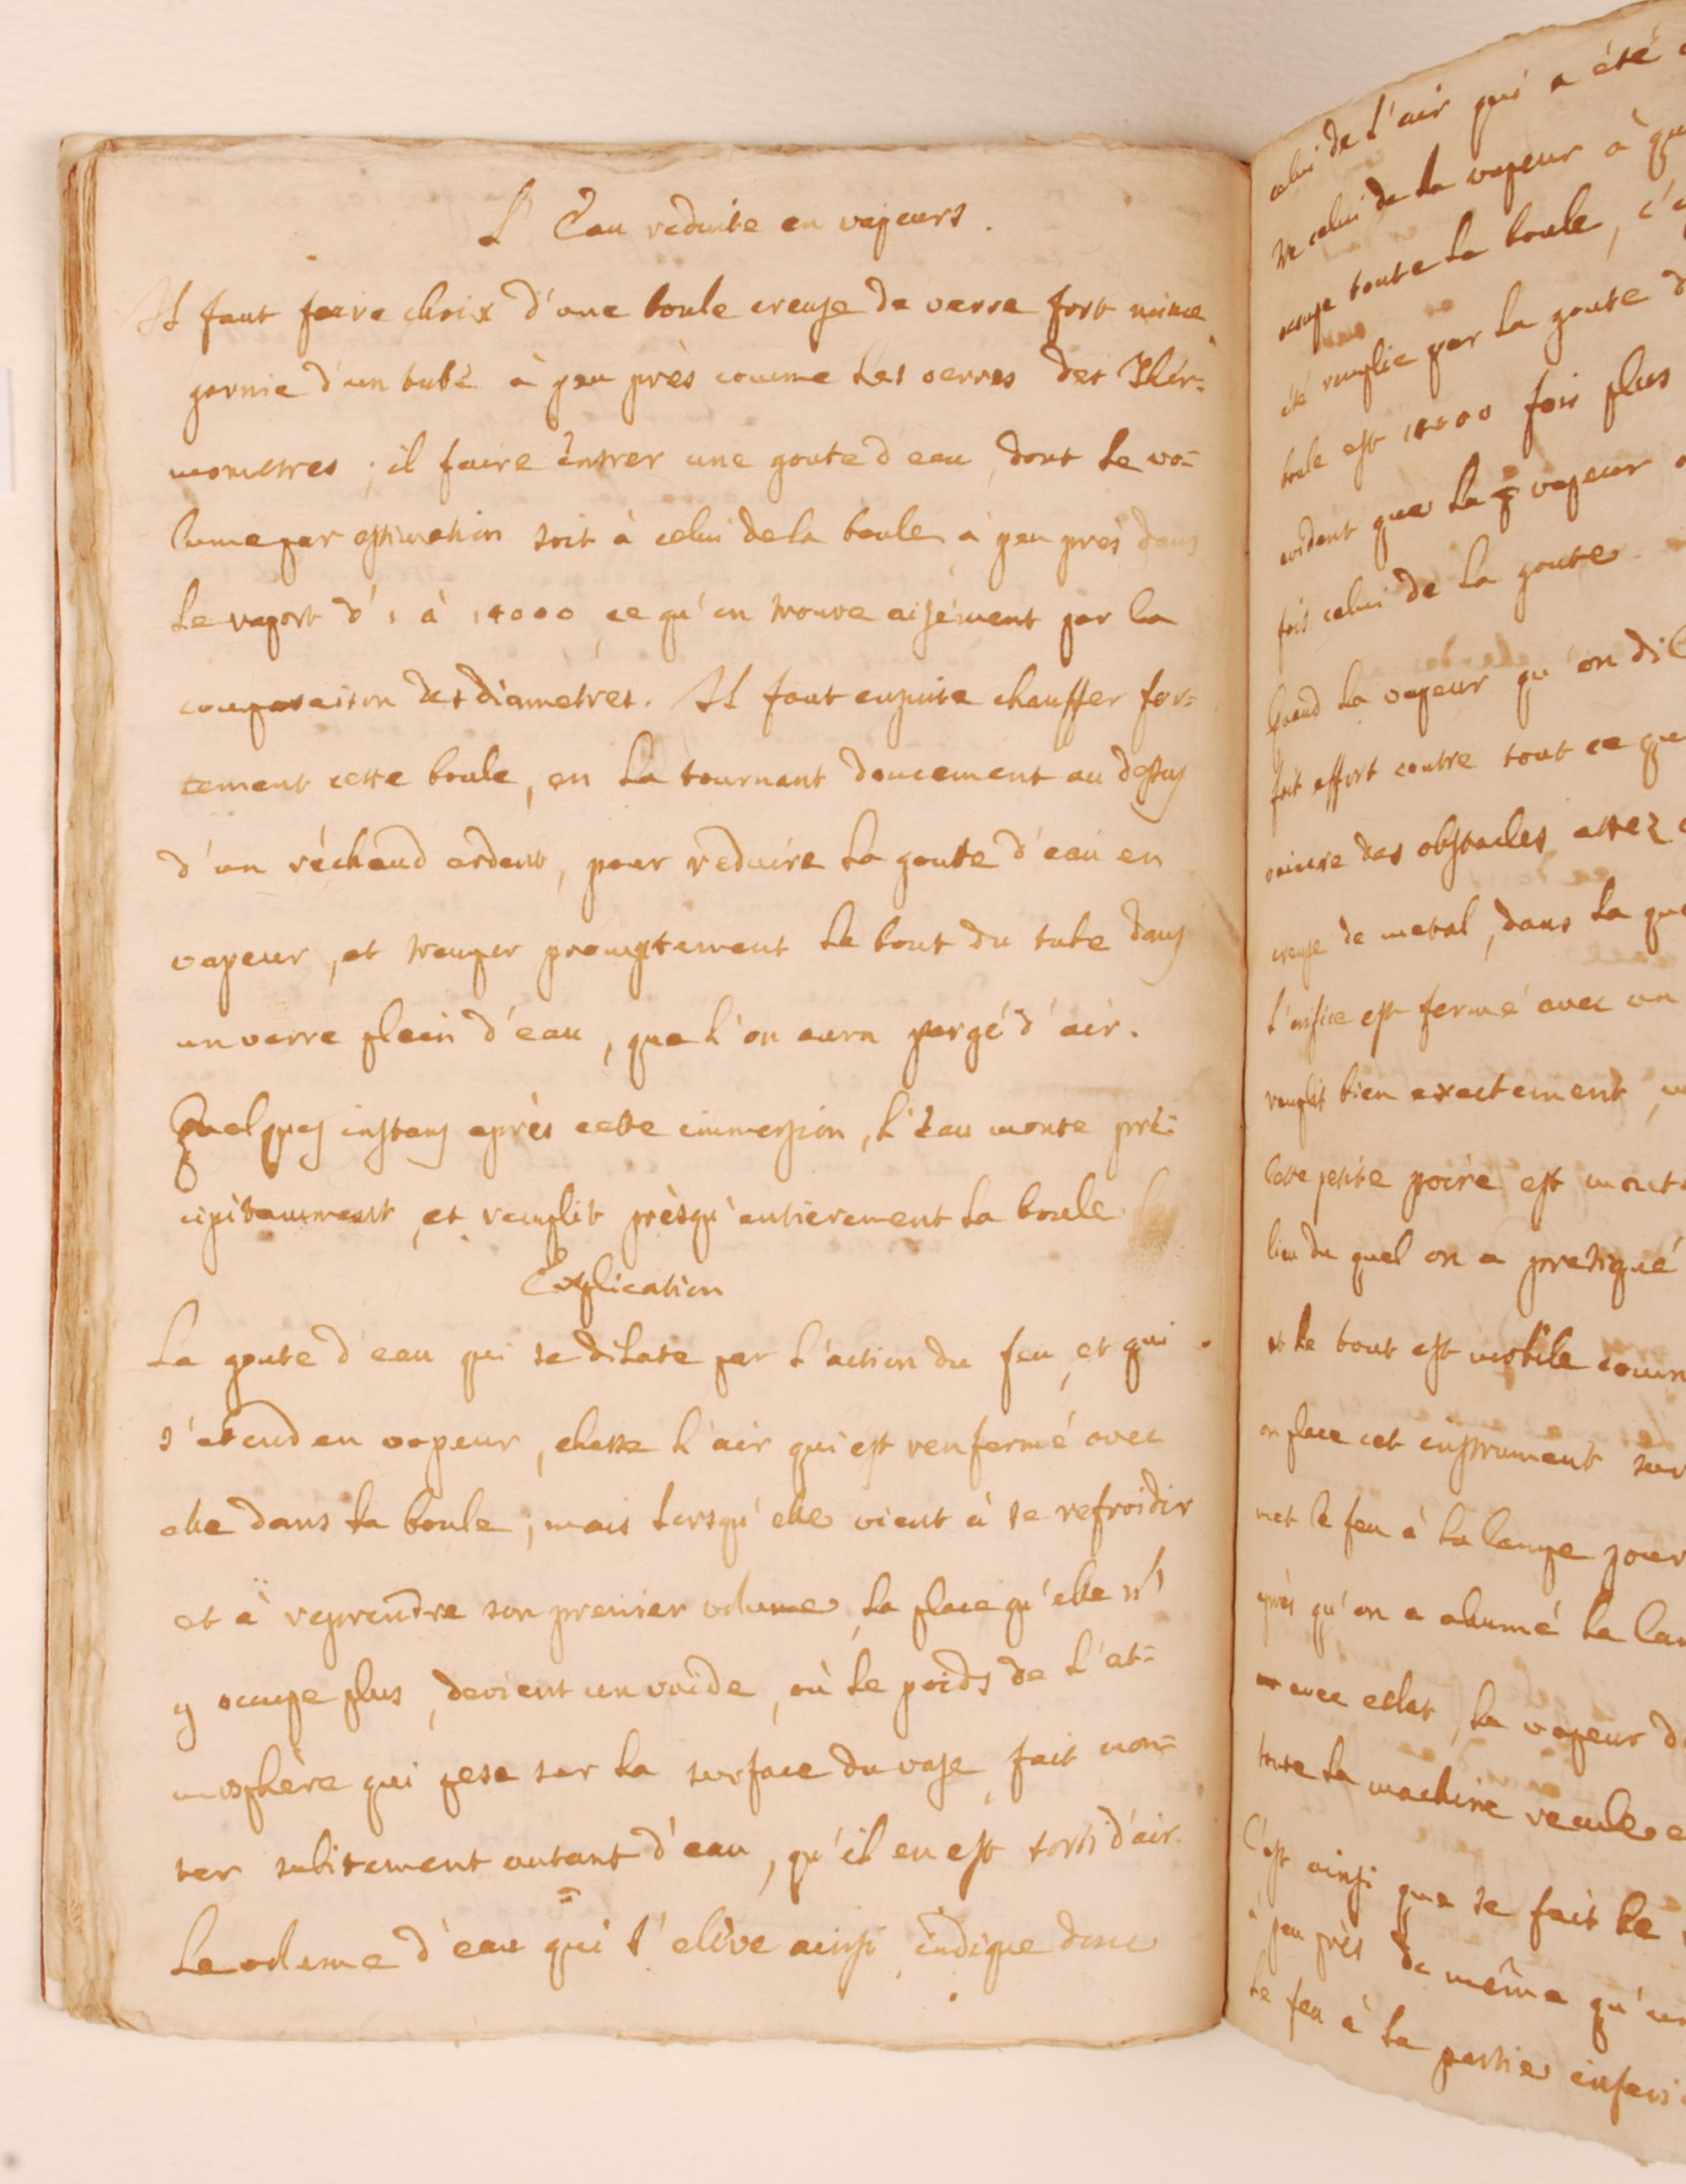 L'Eau reduite en vapeurs.
Il faut faire choix d'une boule creuse de verre fort mince
garnie d'un tube à peu près comme les verres des Thér=
mometres ; il faire entrer une goute d'eau, dont le vo=
lume par estimation soit à celui de la boule à peu près dans
le raport d'1 à 14000, ce qu'on trouve aisément par la
comparaison des diametres. Il faut ensuite chauffer for=
tement cette boule, en la tournant doucement au dessus
d'un réchaud ardent, pour reduire la goute d'eau en
vapeur, et tremper promptement le bout du tube dans
un verre plein d'eau, que l'on aura purgé d'air.
Quelques instans après cette immersion, l'eau monte pré=
cipitamment, et remplit prèsqu'entierement la boule
Explication
La goute d'eau qui se dilate par l'action du feu, et qui
s'etend en vapeur, chasse l'air qui est renfermé avec
elle dans la boule ; mais lorsqu'elle vient à se refroidir
et à reprendre son premier volume, la place qu'elle n'
y occupe plus, devient un vuide, où le poids de l'at=
mosphère qui pese sur la surface du vase, fait mon=
ter subitement autant d'eau, qu'il en est sorti d'air.
Le volume d'eau qui s'elève ainsi, indique donc
celui de l'air qui a été
celui de la vapeur à
occupe toute la boule,
été remplie par la goute
boule est 14000 fois plus
evident que la vapeur
fois celui de la goute.
Quand la vapeur qu'on
fait effort contre tout ce
vaincre des obstacles assez
creuse de metal, dans la
l'orifice est fermé avec un
remplit bien exactement,
Cette petite poire est
lieu du quel on a pratiqué
et le bout est mobile
on place cet instrument sur
met le feu à la lampe pour
après qu'on a alumé la
avec eclat, la vapeur
toute la machine recule
C'est ainsi que se fait le
à peu près de même
le feu à la partie